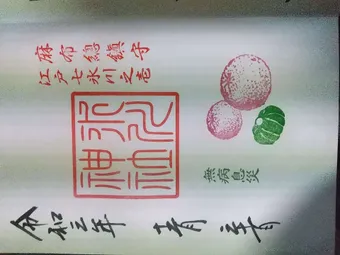 麻布總鎮守
江戸七氷川之壱
氷川神社
無病息災
令和三年